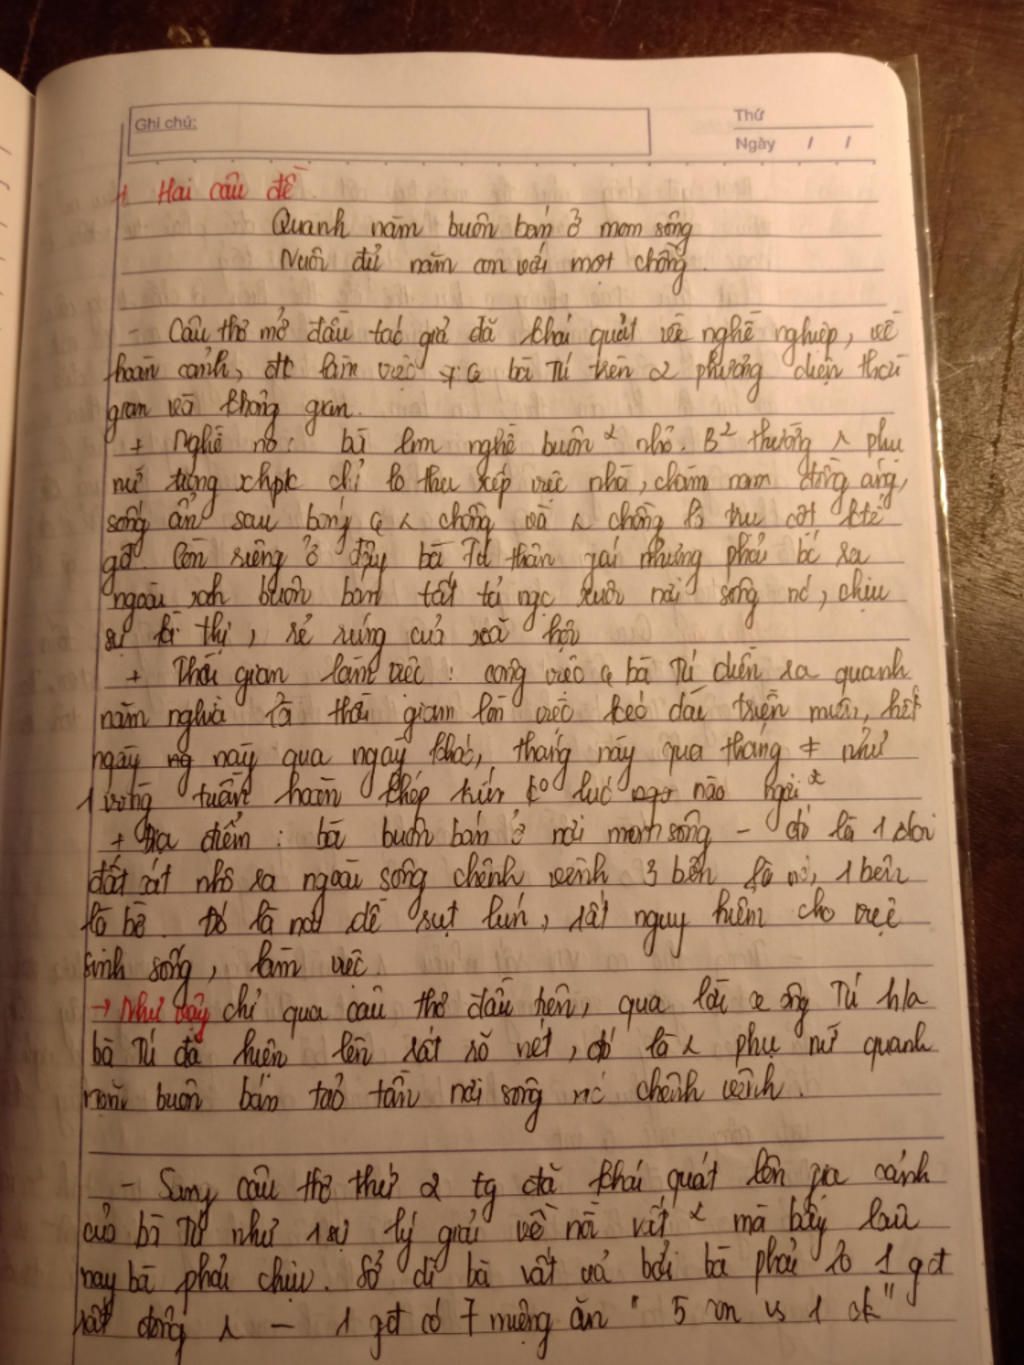 Ghi chú:
Thứ
Ngày / /
+ Hai câu đề
Quanh năm buôn bán ở mom sông
Nuôi đủ năm con với một chồng.
- Câu thơ mở đầu tác giả đã khái quát về nghề nghiệp, về
hoàn cảnh, làm việc bà Tú trên 2 phương diện thời
gian và không gian.
+ Nghề no: bà lm nghề buôn nhỏ. B² thường phụ
nữ trong xhpk chỉ lo thu xếp việc nhà, chăm nom đồng áng,
sống ẩn sau bóng chồng và chồng là trụ cột ktế
gđ. Còn riêng ở đây bà Tú thân gái nhưng phải ra
ngoài xh buôn bán tất tả ngc xuôi nơi sông nc, chịu
sự kì thị, rẻ rúng của xã hội
+ Thời gian làm việc: công việc bà Tú diễn ra quanh
năm nghĩa là thời gian làm việc kéo dài triền miên, hết
ngày này qua ngày khác, tháng này qua tháng ≠ như
1 vòng tuần hoàn khép kín k⁰ lúc nào
+ Địa điểm: bà buôn bán ở nơi mom sông - đó là 1 doi
đất nhô ra ngoài sông chênh vênh 3 bên là nc, 1 bên
là bờ. Đó là nơi dễ sụt lún, rất nguy hiểm cho việc
sinh sống, làm việc.
→ Như vậy chỉ qua câu thơ đầu tiên, qua lời ông Tú h/a
bà Tú đã hiện lên rất rõ nét, đó là phụ nữ quanh
năm buôn bán tảo tần nơi sông nc chênh vênh.
- Sang câu thơ thứ 2 tg đã khái quát lên gia cảnh
của bà Tú như 1 sự lý giải về nỗi vất mà bấy lâu
nay bà phải chịu. Sở dĩ bà vất vả bởi bà phải lo 1 gđ
rất đông - 1 gđ có 7 miệng ăn " 5 con vs 1 ck"